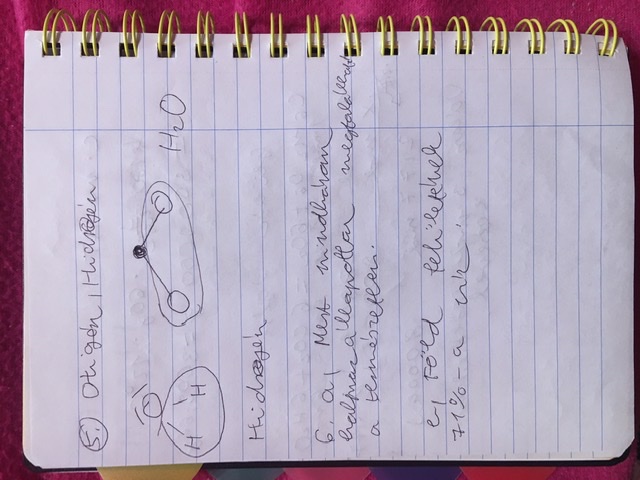 5.) Oxigén, Hidrogén
H₂O
O
H H
Hidrogén
6. a, Mert mindhárom
halmazállapotban megtalálható
a természetben.
e, Föld felületének
71%-a víz.